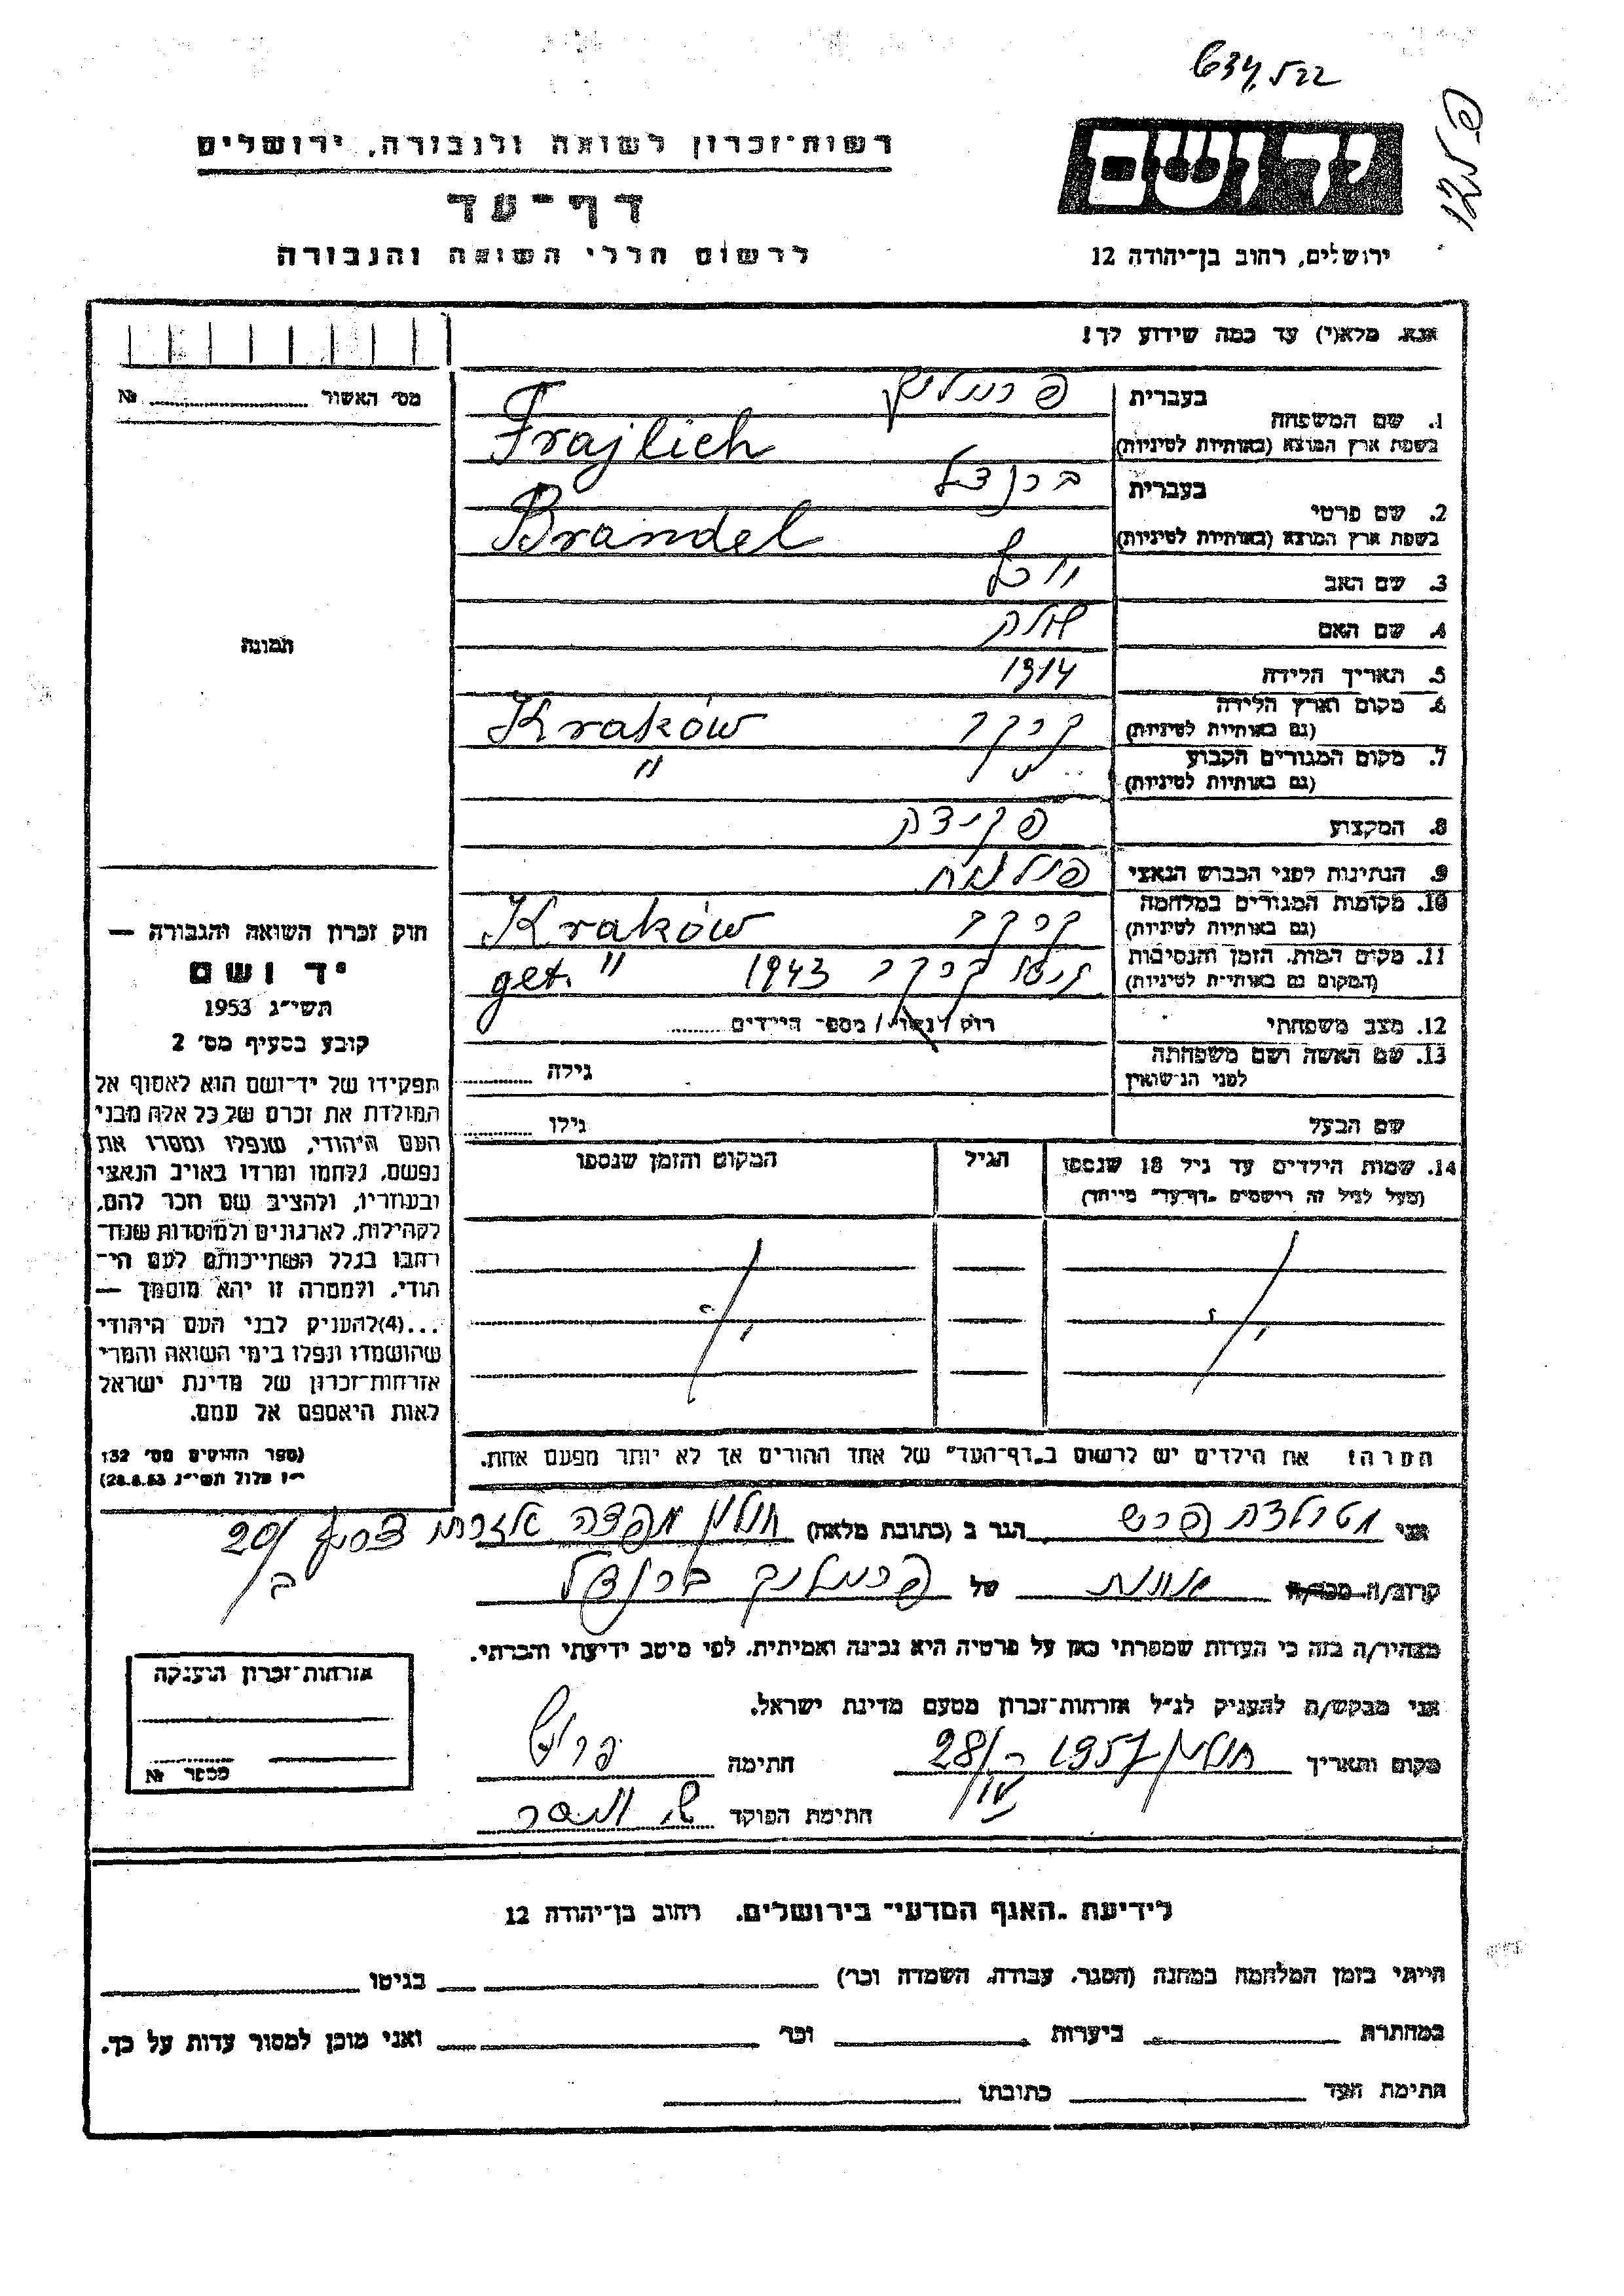 634,522
125פ
יד ושם
ירושלים, רחוב בן־יהודה 12
רשות־זכרון לשואה ולגבורה, ירושלים
דף־עד
לרשום חללי השואה והגבורה
אנא, מלא(י) עד כמה שידוע לך!
מס׳ האשור № 
תמונה
בעברית
1. שם המשפחה
בשפת ארץ המוצא (באותיות לטיניות) Frajlich
בעברית ברנדל
2. שם פרטי
בשפת ארץ המוצא (באותיות לטיניות) Brandel
3. שם האב
4. שם האם
5. תאריך הלידה 1914
6. מקום וארץ הלידה קרקר Kraków
(גם באותיות לטיניות)
7. מקום המגורים הקבוע " "
(גם באותיות לטיניות)
8. המקצוע פקידה
9. הנתינות לפני הכבוש הנאצי
10. מקומות המגורים במלחמה קרקר Kraków
(גם באותיות לטיניות)
11. מקום המות, הזמן והנסיבות גיטו קרקר 1943 get. "
(המקום גם באותיות לטיניות)
12. מצב משפחתי רוק / נשוי / מספר הילדים
13. שם האשה ושם משפחתה גילה
לפני הנישואין
שם הבעל גילו
14. שמות הילדים עד גיל 18 שנספו הגיל המקום והזמן שנספו
(מעל לגיל זה רושמים "דף־עד" מיוחד)
הערה: את הילדים יש לרשום ב"דף־העד" של אחד ההורים אך לא יותר מפעם אחת.
חוק זכרון השואה והגבורה —
יד ושם
תשי״ג 1953
קובע בסעיף מס׳ 2
תפקידו של יד־ושם הוא לאסוף אל
המולדת את זכרם של כל אלה מבני
העם היהודי, שנפלו ומסרו את
נפשם, נלחמו ומרדו באויב הנאצי
ובעוזריו, ולהציב שם וזכר להם,
לקהילות, לארגונים ולמוסדות שנח־
רבו בגלל השתייכותם לעם הי־
הודי, ולמטרה זו יהא מוסמך —
...(4)להעניק לבני העם היהודי
שהושמדו ונפלו בימי השואה והמרי
אזרחות־זכרון של מדינת ישראל
לאות היאספם אל עמם.
(ספר החוקים מס׳ 132
י״ז אלול תשי״ג 28.8.53)
אני הגר ב (כתובת מלאה) חולון 20/
ב
קרוב/ה מכר/ה אחות של ברנדל
מצהיר/ה בזה כי העדות שמסרתי כאן על פרטיה היא נכונה ואמיתית, לפי מיטב ידיעתי והכרתי.
אני מבקש/ת להעניק לנ״ל אזרחות־זכרון מטעם מדינת ישראל.
מקום ותאריך חולון 1957 28/IV חתימה
חתימת הפוקד
אזרחות־זכרון הוענקה
מספר №
לידיעת "האגף המדעי" בירושלים, רחוב בן־יהודה 12
הייתי בזמן המלחמה במחנה (הסגר, עבודה, השמדה וכו׳) בגיטו
במחתרת ביערות וכו׳ ואני מוכן למסור עדות על כך.
חתימת העד כתובתו